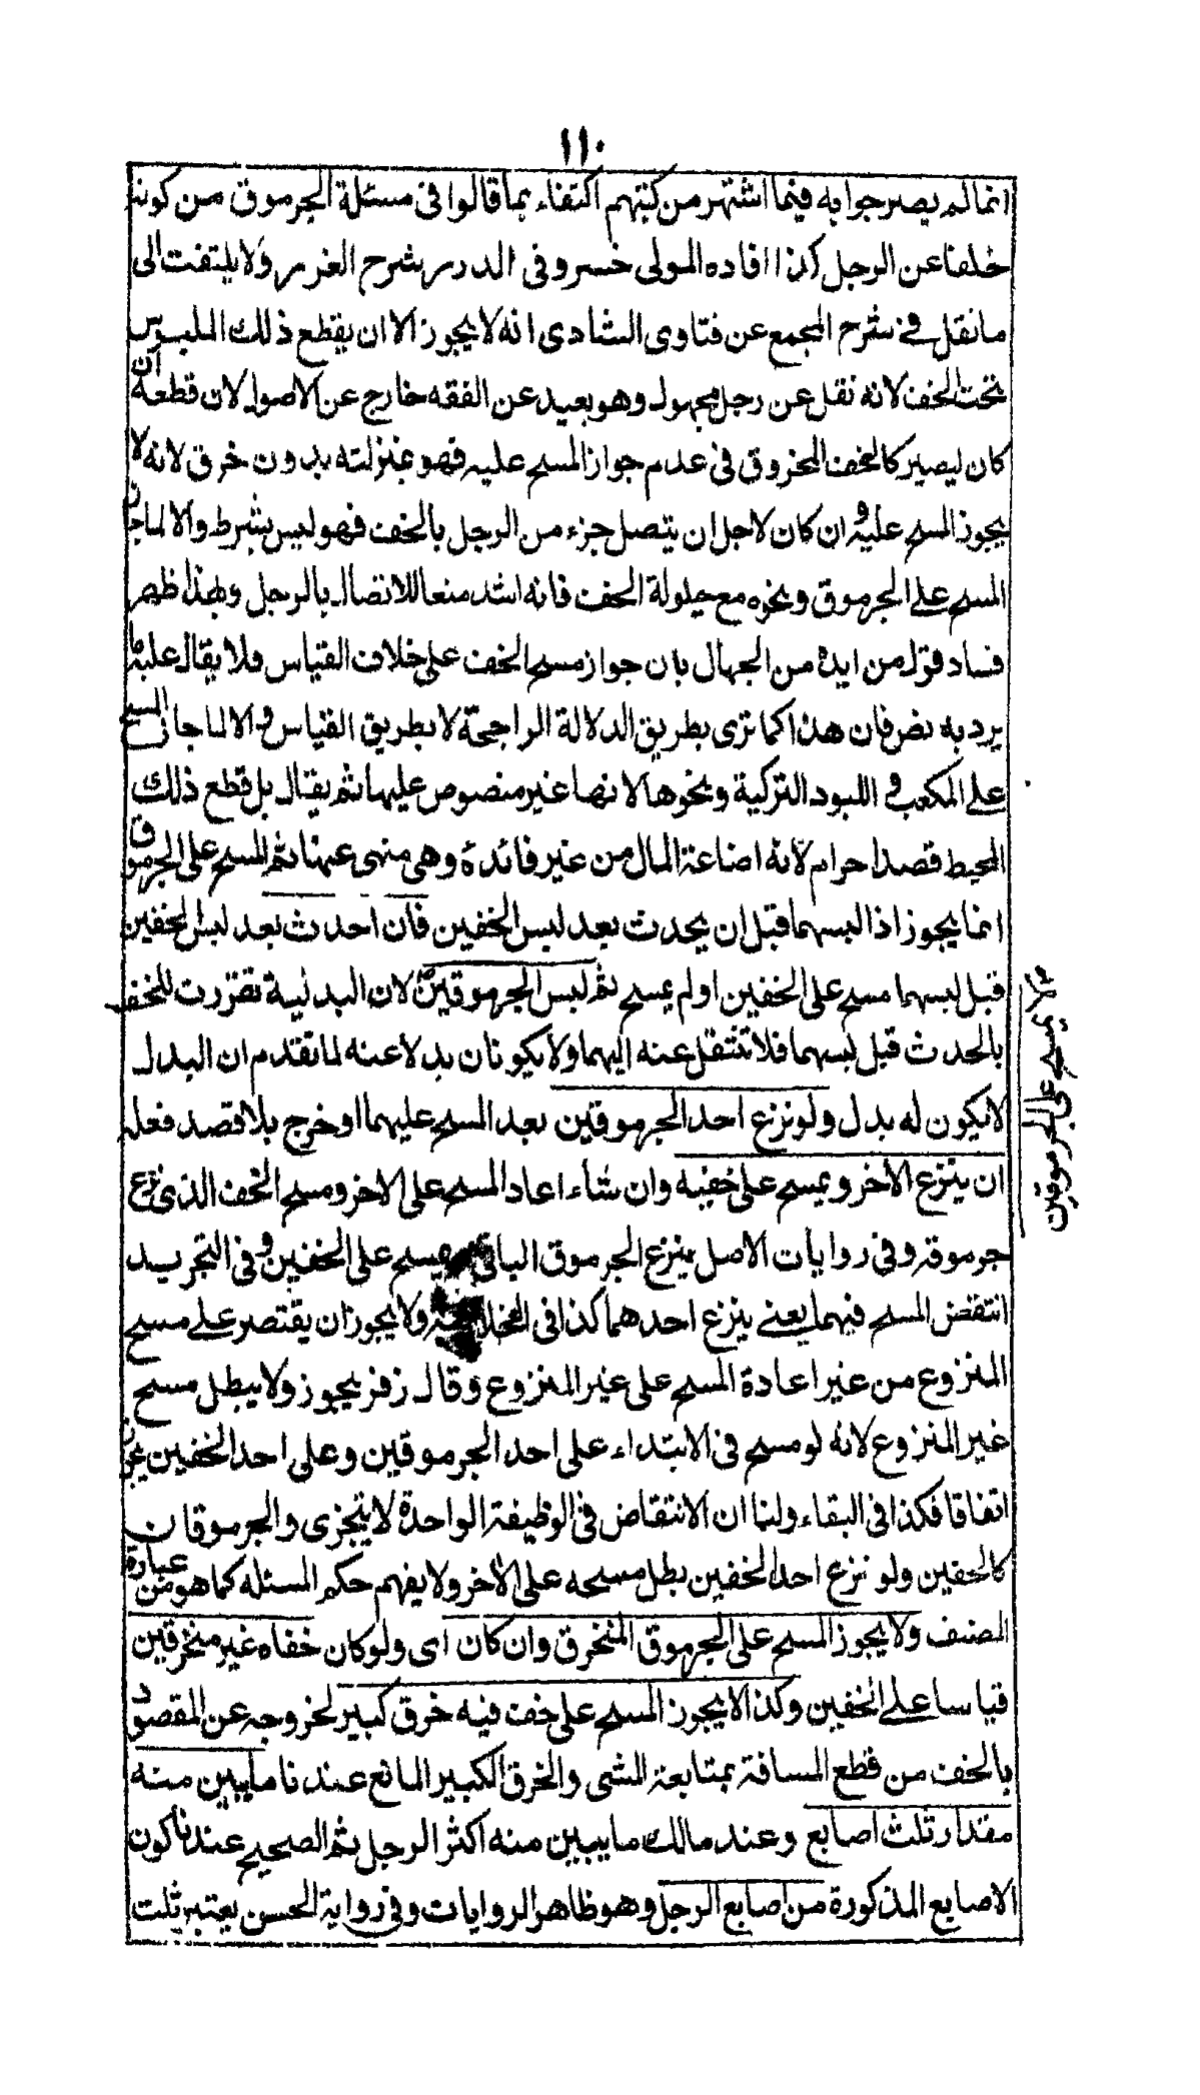 ١١٠
انما لم يصرحوا به فيما اشتهر من كتبهم اكتفاء بما قالوا فى مسئلة الجرموق من كونه
خلفا عن الرجل كذا افاده المولى خسرو فى الدرر شرح الغرر ولا يلتفت الى
ما نقل فى شرح المجمع عن فتاوى الشاذى انه لا يجوز الا ان يقطع ذلك الملبوس
تحت الخف لانه نقل عن رجل مجهول وهو بعيد عن الفقه خارج عن الاصول لان قطعه ان
كان ليصير كالخف المخروق فى عدم جواز المسح عليه فهو بمنزلته بدون خرق لانه لا
يجوز المسح عليه وان كان لاجل ان يتصل جزء من الرجل بالخف فهو ليس بشرط والا لما جاز
المسح على الجرموق ونحوه مع حيلولة الخف فانه اشد منعا للاتصال بالرجل وبهذا ظهر
فساد قول من ايده من الجهال بان جواز مسح الخف على خلاف القياس فلا يقال عليه ما لم
يرد به نص فان هذا كما ترى بطريق الدلالة الراجحة لا بطريق القياس والا لما جاز المسح
على المكعب و اللبود التركية ونحوها لانها غير منصوص عليها ثم يقال بل قطع ذلك
المحيط قصدا حرام لانه اضاعة المال من غير فائدة وهى منهى عنها ثم المسح على الجرموق
انما يجوز اذا لبسهما قبل ان يحدث بعد لبس الخفين فان احدث بعد لبس الخفين
قبل لبسهما مسح على الخفين او لم يمسح ثم لبس الجرموقين لان البدلية تقررت للخف
بالحدث قبل لبسهما فلا تنتقل عنه اليهما ولا يكونان بدلا عنه لما تقدم ان البدل
لا يكون له بدل ولو نزع احد الجرموقين بعد المسح عليهما او خرج بلا قصد فعليه
ان ينزع الاخر ويمسح على خفيه وان شاء اعاد المسح على الاخر ومسح الخف الذى نزع
جرموقه وفى روايات الاصل ينزع الجرموق الباقى ويمسح على الخفين وفى التجريد
انتقض المسح فيهما يعنى ينزع احدهما كذا فى ولا يجوز ان يقتصر على مسح
المنزوع من غير اعادة المسح على غير المنزوع وقال زفر يجوز ولا يبطل مسح
غير المنزوع لانه لو مسح فى الابتداء على احد الجرموقين وعلى احد الخفين يجوز
اتفاقا فكذا فى البقاء ولنا ان الانتقاض فى الوظيفة الواحدة لا يتجزى والجرموقان
كالخفين ولو نزع احد الخفين بطل مسحه على الاخر ولا يفهم حكم المسئله كما هو من عبارة
المصنف ولا يجوز المسح على الجرموق المنخرق وان كان اى ولو كان خفاه غير منخرقين
قياسا على الخفين وكذا لا يجوز المسح على خف فيه خرق كبير لخروجه عن المقصود
بالخف من قطع المسافة بمتابعة المشى والخرق الكبير المانع عندنا ما يبين منه
مقدار ثلث اصابع وعند مالك ما يبين منه اكثر الرجل ثم الصحيح عندنا كون
الاصابع المذكورة من اصابع الرجل وهو ظاهر الروايات وفى رواية الحسن يعتبر ثلث
يمسح على الجرموقين